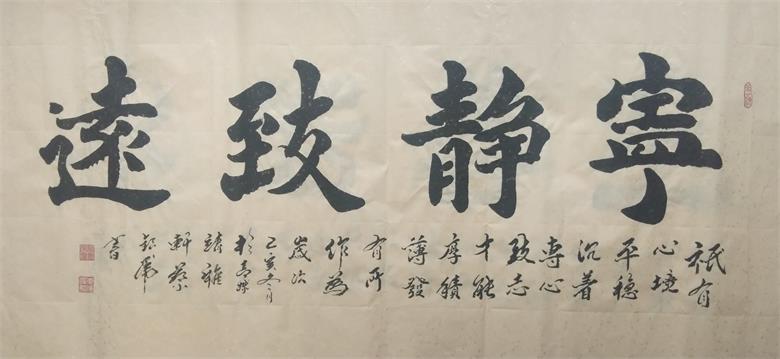 寧靜致遠
祇有
心境
平穩
沉着
専心
致志
才能
厚積
薄發
有所
作為
歲次
己亥冬月
於青城
靖雅
軒蔡
書